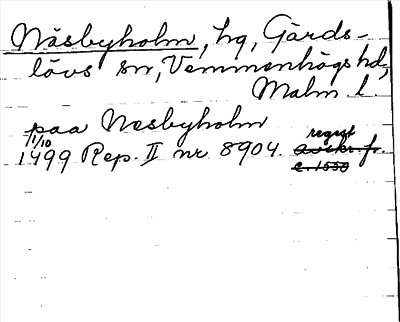 Näsbyholm, hg, Gärds-
lövs sn, Vemmenhögs hd,
Malm l.
paa Næsbyholm
1/10 regest
1499 Rep. II nr 8904. avskr. fr.
c. 1550